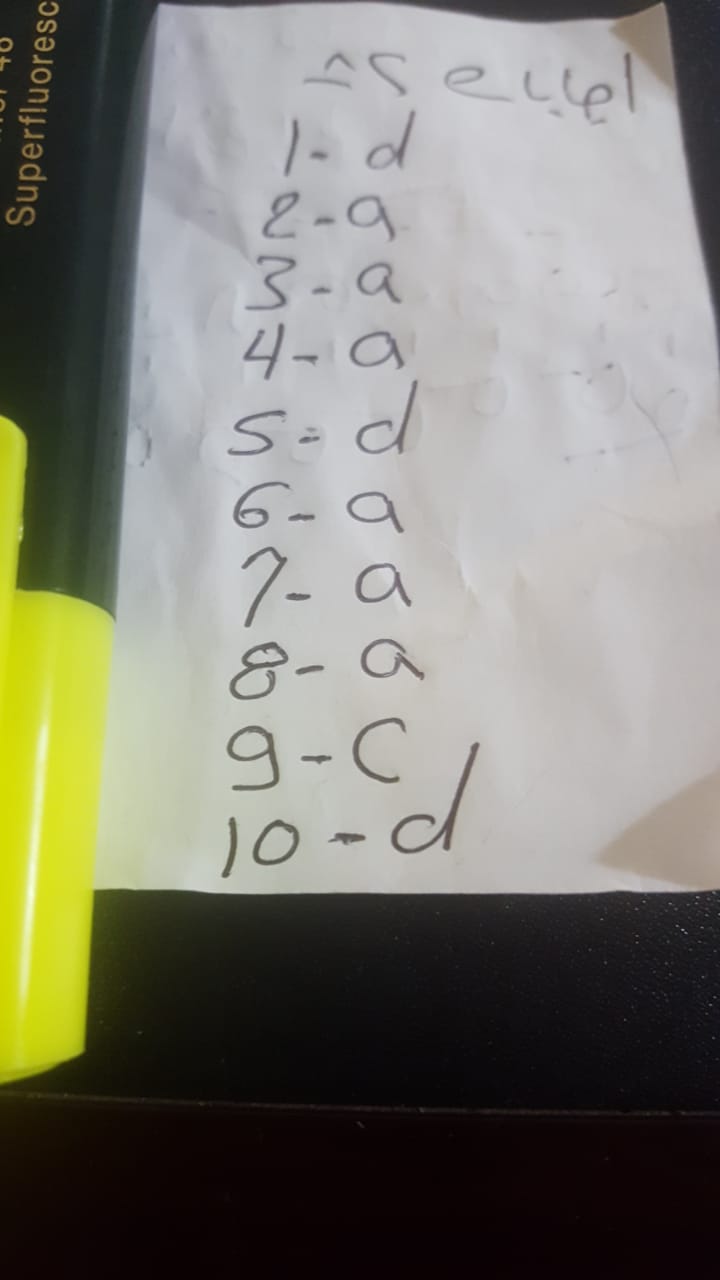 Superfluoresc
1- d
2-a
3-a
4-a
5-d
6-a
7-a
8-a
9-C
10-d